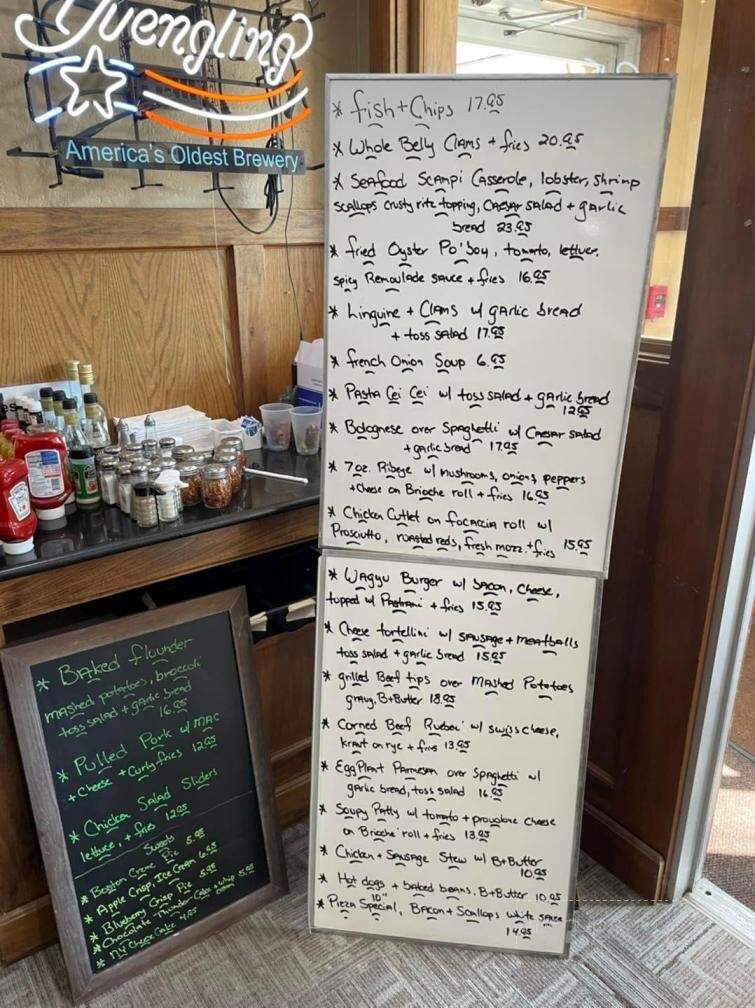 Yuengling
America's Oldest Brewery
* fish + Chips 17.95
* Whole Belly Clams + fries 20.95
* Seafood Scampi Casserole, lobster, shrimp
scallops crusty ritz topping, Caesar salad + garlic
bread 23.95
* fried Oyster Po'boy, tomato, lettuce,
spicy Remoulade sauce + fries 16.95
* Linguine + Clams w/ garlic bread
+ toss salad 17.95
* french Onion Soup 6.95
* Pasta Cei Cei w/ toss salad + garlic bread
12.95
* Bolognese over Spaghetti w/ Caesar salad
+ garlic bread 17.95
* 7oz. Ribeye w/ mushrooms, onions, peppers
+ cheese on Brioche roll + fries 16.95
* Chicken Cutlet on focaccia roll w/
Prosciutto, roasted reds, fresh mozz + fries 15.95
* Wagyu Burger w/ bacon, cheese,
topped w/ Pastrami + fries 15.95
* Cheese tortellini w/ sausage + meatballs
toss salad + garlic bread 15.95
* grilled Beef tips over Mashed Potatoes
gravy, B+Butter 18.95
* Corned Beef Rueben w/ swiss cheese,
kraut on rye + fries 13.95
* EggPlant Parmesan over Spaghetti w/
garlic bread, toss salad 16.95
* Soupy Patty w/ tomato + provolone cheese
on Brioche roll + fries 13.95
* Chicken + Sausage Stew w/ B+Butter
10.95
* Hot dogs + baked beans, B+Butter 10.95
* 10" Pizza Special, Bacon + Scallops white sauce
14.95
* Baked flounder
mashed potatoes, broccoli
toss salad + garlic bread
16.95
* Pulled Pork w/ Mac
+ Cheese + Curly fries 12.95
* Chicken Salad Sliders
lettuce, + fries 12.95
Sweets
* Boston Creme Pie 5.95
* Apple Crisp, Ice Cream 6.95
* Blueberry Crisp Pie 5.95
* Chocolate Thunder Cake + whip cream 5.95
* NY Cheese Cake 4.95